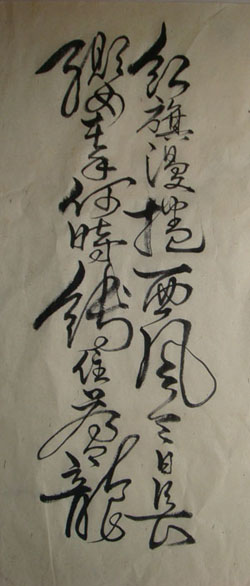 紅旗漫捲西風今日長
纓在手何時縛住蒼龍